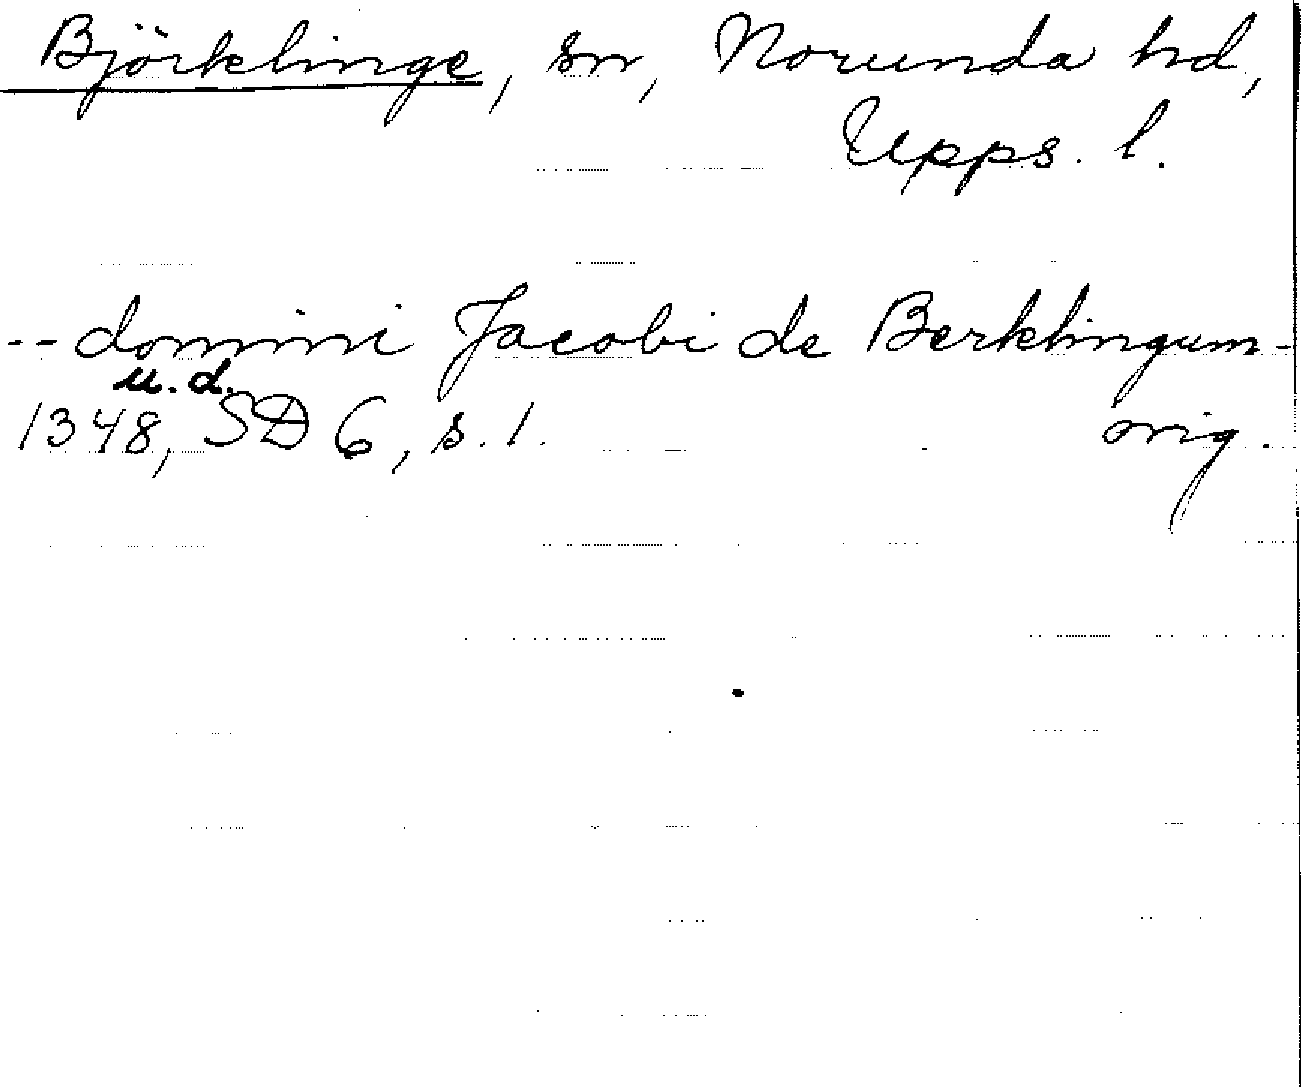 Björklinge, sn, Norunda hd,
Upps. l.
-- domini Jacobi de Berklingum -
u.d.
1348, SD 6, s. 1. orig.